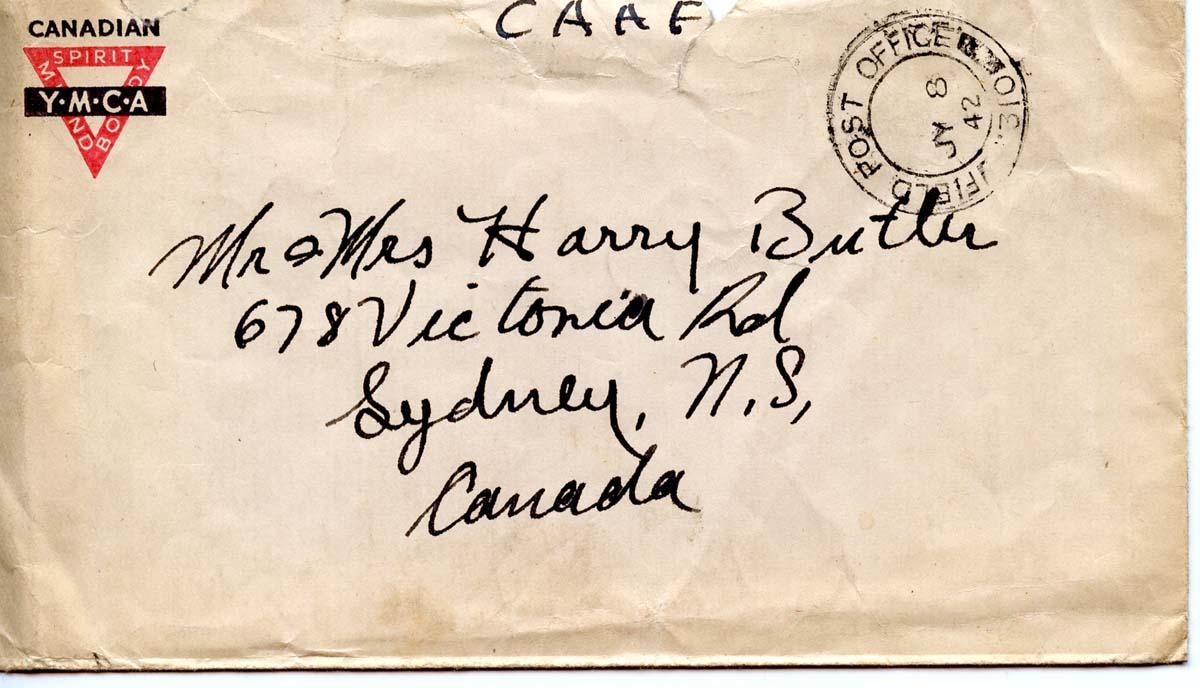 CAAF
CANADIAN
SPIRIT
MIND
BODY
Y·M·C·A
FIELD POST OFFICE
JY 8
42
Mr & Mrs Harry Butler
678 Victoria Rd
Sydney, N.S,
Canada